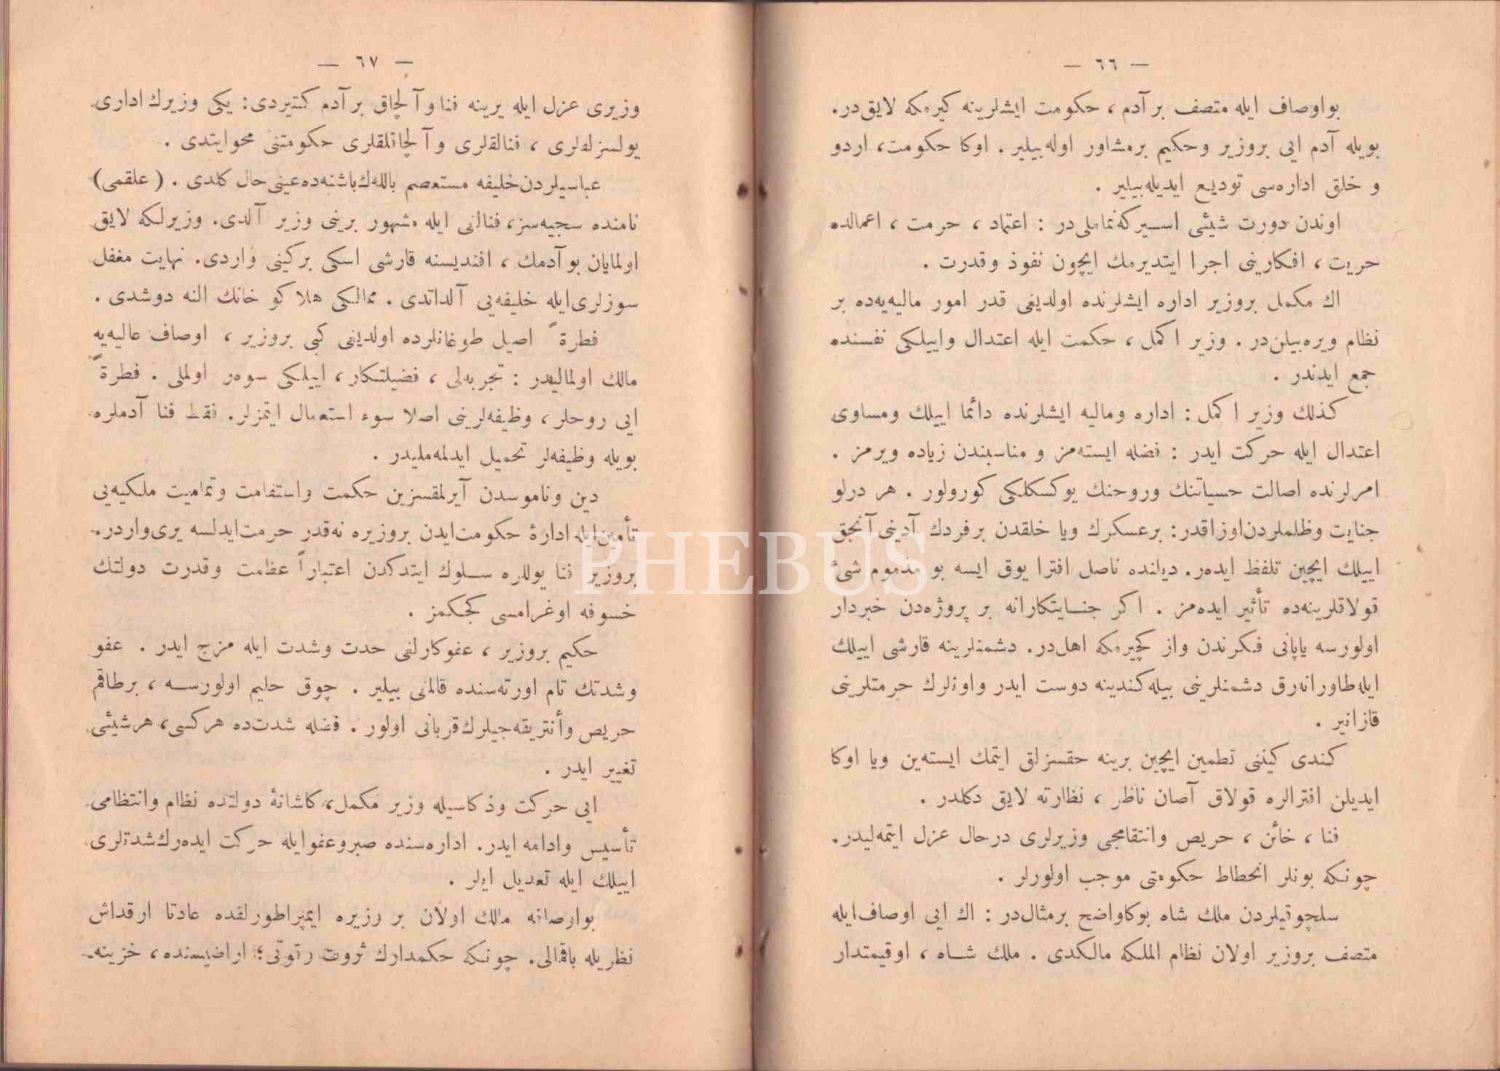 — ٦٦ —
بو اوصاف ايله متصف بر آدم ، حكومت ايشلرينه كيرمكه لايق‌در.
بويله آدم ايى بر وزير وحكيم بر مشاور اوله‌بيلير . اوكا حكومت، اردو
و خلق اداره‌سى توديع ايديله‌بيلير .
اوندن دورت شيئى اسيركه‌ممليدر : اعتماد ، حرمت ، اعمالده
حريت ، افكارينى اجرا ايتديرمك ايچون نفوذ وقدرت .
اك مكمل بر وزير اداره ايشلرنده اولديغى قدر امور ماليه‌يه‌ده بر
نظام ويره‌بيلن‌در . وزير اكمل ، حكمت ايله اعتدال واييلكى نفسنده
جمع ايدندر .
كذلك وزير اكمل : اداره وماليه ايشلرنده دائما اييلك ومساوى
اعتدال ايله حركت ايدر : فضله ايسته‌مز و مناسبندن زياده ويرمز .
امرلرنده اصالت حسياتنك وروحنك يوكسكلكى كورولور . هر درلو
جنايت وظلملردن اوزاقدر: بر عسكرك ويا خلقدن بر فردك آدينى آنجق
اييلك ايچين تلفظ ايدر. ديلنده ناصل افترا يوق ايسه بو مذموم شئ
قولاقلرينه‌ده تأثير ايده‌مز . اكر جنايتكارانه بر پروژه‌دن خبردار
اولورسه ياپانى فكرندن واز كچيرمكه اهل‌در. دشمنلرينه قارشى اييلك
ايله طاورانه‌رق دشمنلرينى بيله كندينه دوست ايدر واونلرك حرمتلرينى
قازانير .
كندى كيننى تطمين ايچين برينه حقسزلق ايتمك ايسته‌ين ويا اوكا
ايديلن افترالره قولاق آصان ناظر ، نظارته لايق دكلدر .
فنا ، خائن ، حريص وانتقامجى وزيرلرى درحال عزل ايتمه‌ليدر.
چونكه بونلر انحطاط حكومتى موجب اولورلر .
سلچوقيلردن ملك شاه بوكا واضح بر مثال‌در : اك ايى اوصاف ايله
متصف بر وزير اولان نظام الملكه مالكدى . ملك شاه ، او قيمتدار
— ٦٧ —
وزيرى عزل ايله يرينه فنا وآلچاق بر آدم كتيردى: يكى وزيرك ادارى
يولسزلقلرى ، فنالقلرى وآلچاقلقلرى حكومتنى محو ايتدى .
عباسيلردن خليفه مستعصم بالله‌ك باشنه‌ده عينى حال كلدى . (علقمى)
نامنده سجيه‌سز، فنالغى ايله مشهور برينى وزير آلدى. وزيرلكه لايق
اولمايان بو آدمك ، افنديسنه قارشى اسكى بر كينى واردى. نهايت مغفل
سوزلرى ايله خليفه‌يى آلداتدى . ممالكى هلاكو خانك النه دوشدى .
فطرةً اصيل طوغانلرده اولديغى كبى بر وزير ، اوصاف عاليه‌يه
مالك اولماليدر : تجربه‌لى ، فضيلتكار ، اييلكى سوه‌ر اولملى . فطرةً
ايى روحلر ، وظيفه‌لرينى اصلا سوء استعمال ايتمزلر. فقط فنا آدملره
بويله وظيفه‌لر تحميل ايدلمه‌مليدر .
دين وناموسدن آيرلمقسزين حكمت واستقامت وتماميت ملكيه‌يى
تأمين ايله ادارهٔ حكومت ايدن بر وزيره نه‌قدر حرمت ايدلسه يرى واردر.
بر وزير فنا يوللره سلوك ايتدكدن اعتباراً عظمت وقدرت دولتك
خسوفه اوغرامسى كجكمز .
حكيم بر وزير ، عفوكارلغى حدت وشدت ايله مزج ايدر . عفو
وشدتك تام اورته‌سنده قالمغى بيلير . چوق حليم اولورسه ، بر طاقم
حريص وأنتريقه‌جيلرك قربانى اولور . فضله شدت‌ده هركسى، هر شيئى
تغيير ايدر .
ايى حركت وذكاسيله وزير مكمل، كاشانهٔ دولتده نظام وانتظامى
تأسيس وادامه ايدر. اداره‌سنده صبر وعفو ايله حركت ايده‌رك شدتلرى
اييلك ايله تعديل ايلر .
بو اوصافه مالك اولان بر وزيره ايمپراطورلقده عادتا ارقداش
نظريله باقمالى. چونكه حكمدارك ثروت وقوتى؛ اراضيسنده ، خزينه-
PHEBUS